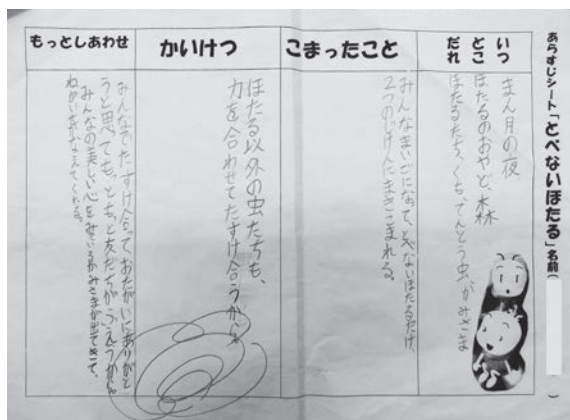 あらすじシート「とべないほたる」名前( )
いつ
どこ
だれ
まん月の夜
ほたるのおやど、森
ほたるたち、くも、てんとう虫、かみさま
こまったこと
みんなまいごになって、とべないほたるだけ、
2つのじけんにまきこまれる。
かいけつ
ほたる以外の虫たちも、
力を合わせてたすけ合うから
もっとしあわせ
みんなでたすけ合って、おたがいにありがと
うと思っても、もっともっと友だちがふえるから
みんなの美しい心をみているかみさまが出てきて、
ねがいをかなえてくれる。